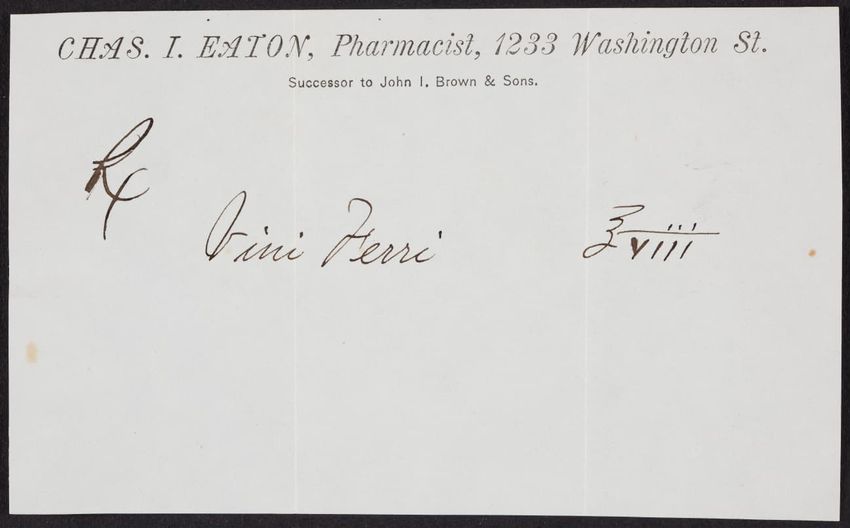 CHAS. I. EATON, Pharmacist, 1233 Washington St.
Successor to John I. Brown & Sons.
℞
Vini Ferri ℥viii